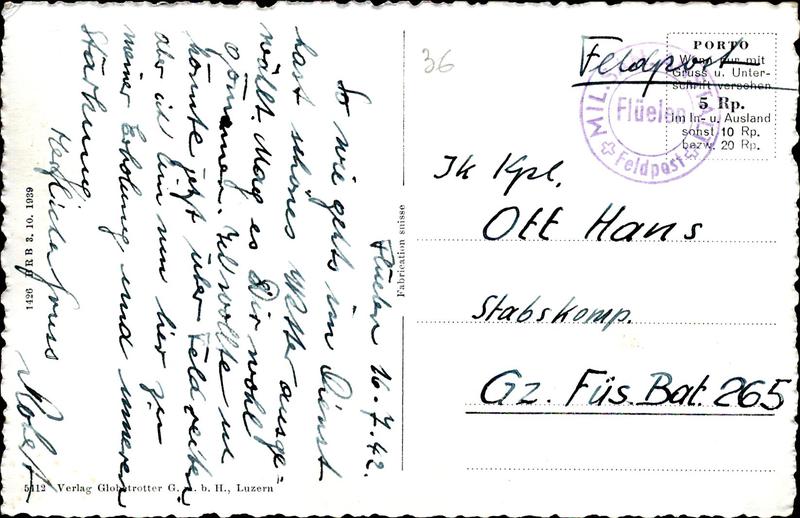 Flüelen 16.7.42.
So wie gehts im Dienst
hast schönes Wetter ausge=
wählt. Mag es Dir wohl
gönnen. Ich wollte ich
könnte jetzt über Feld reiten
aber ich bin nun hier zu
meiner Erholung und inneren
Stärkung
Herzliche Gruss
Robert
36
Feldpost
PORTO
Wenn nur mit
Gruss u. Unter-
schrift versehen
5 Rp.
Im In- u. Ausland
sonst 10 Rp.
bezw. 20 Rp.
MIL.
Flüelen
Feldpost
Ik Kpl.
Ott Hans
Stabskomp.
Gz. Füs. Bat. 265
Fabrication suisse
1426 BRB 3. 10. 1939
5112 Verlag Globetrotter G. m. b. H., Luzern